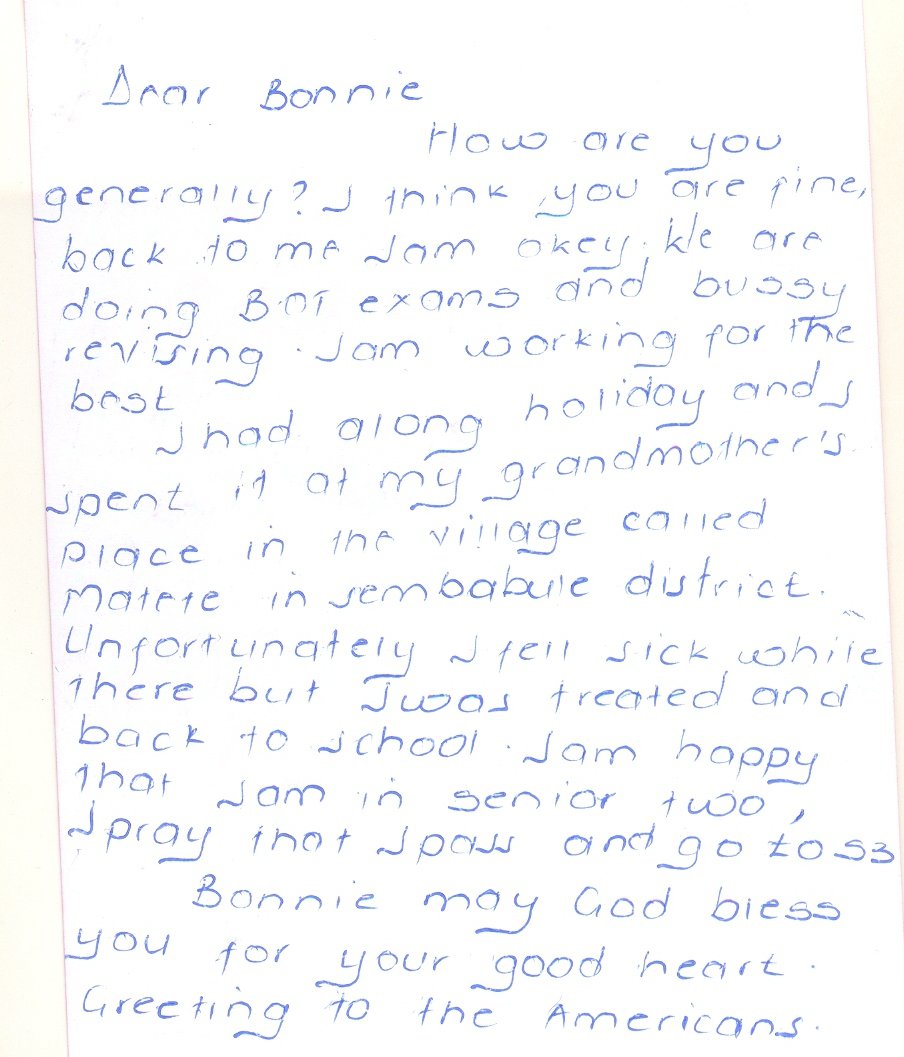 Dear Bonnie
How are you
generally? I think you are fine,
back to me Iam okey. We are
doing BOT exams and bussy
revising. Iam working for the
best
Ihad along holiday and I
spent it at my grandmother's
place in the village called
Matete in sembabule district.
Unfortunately I fell sick while
there but Iwas treated and
back to school. Iam happy
that Iam in senior two,
Ipray that Ipass and go to S3
Bonnie may God bless
you for your good heart.
Greeting to the Americans.